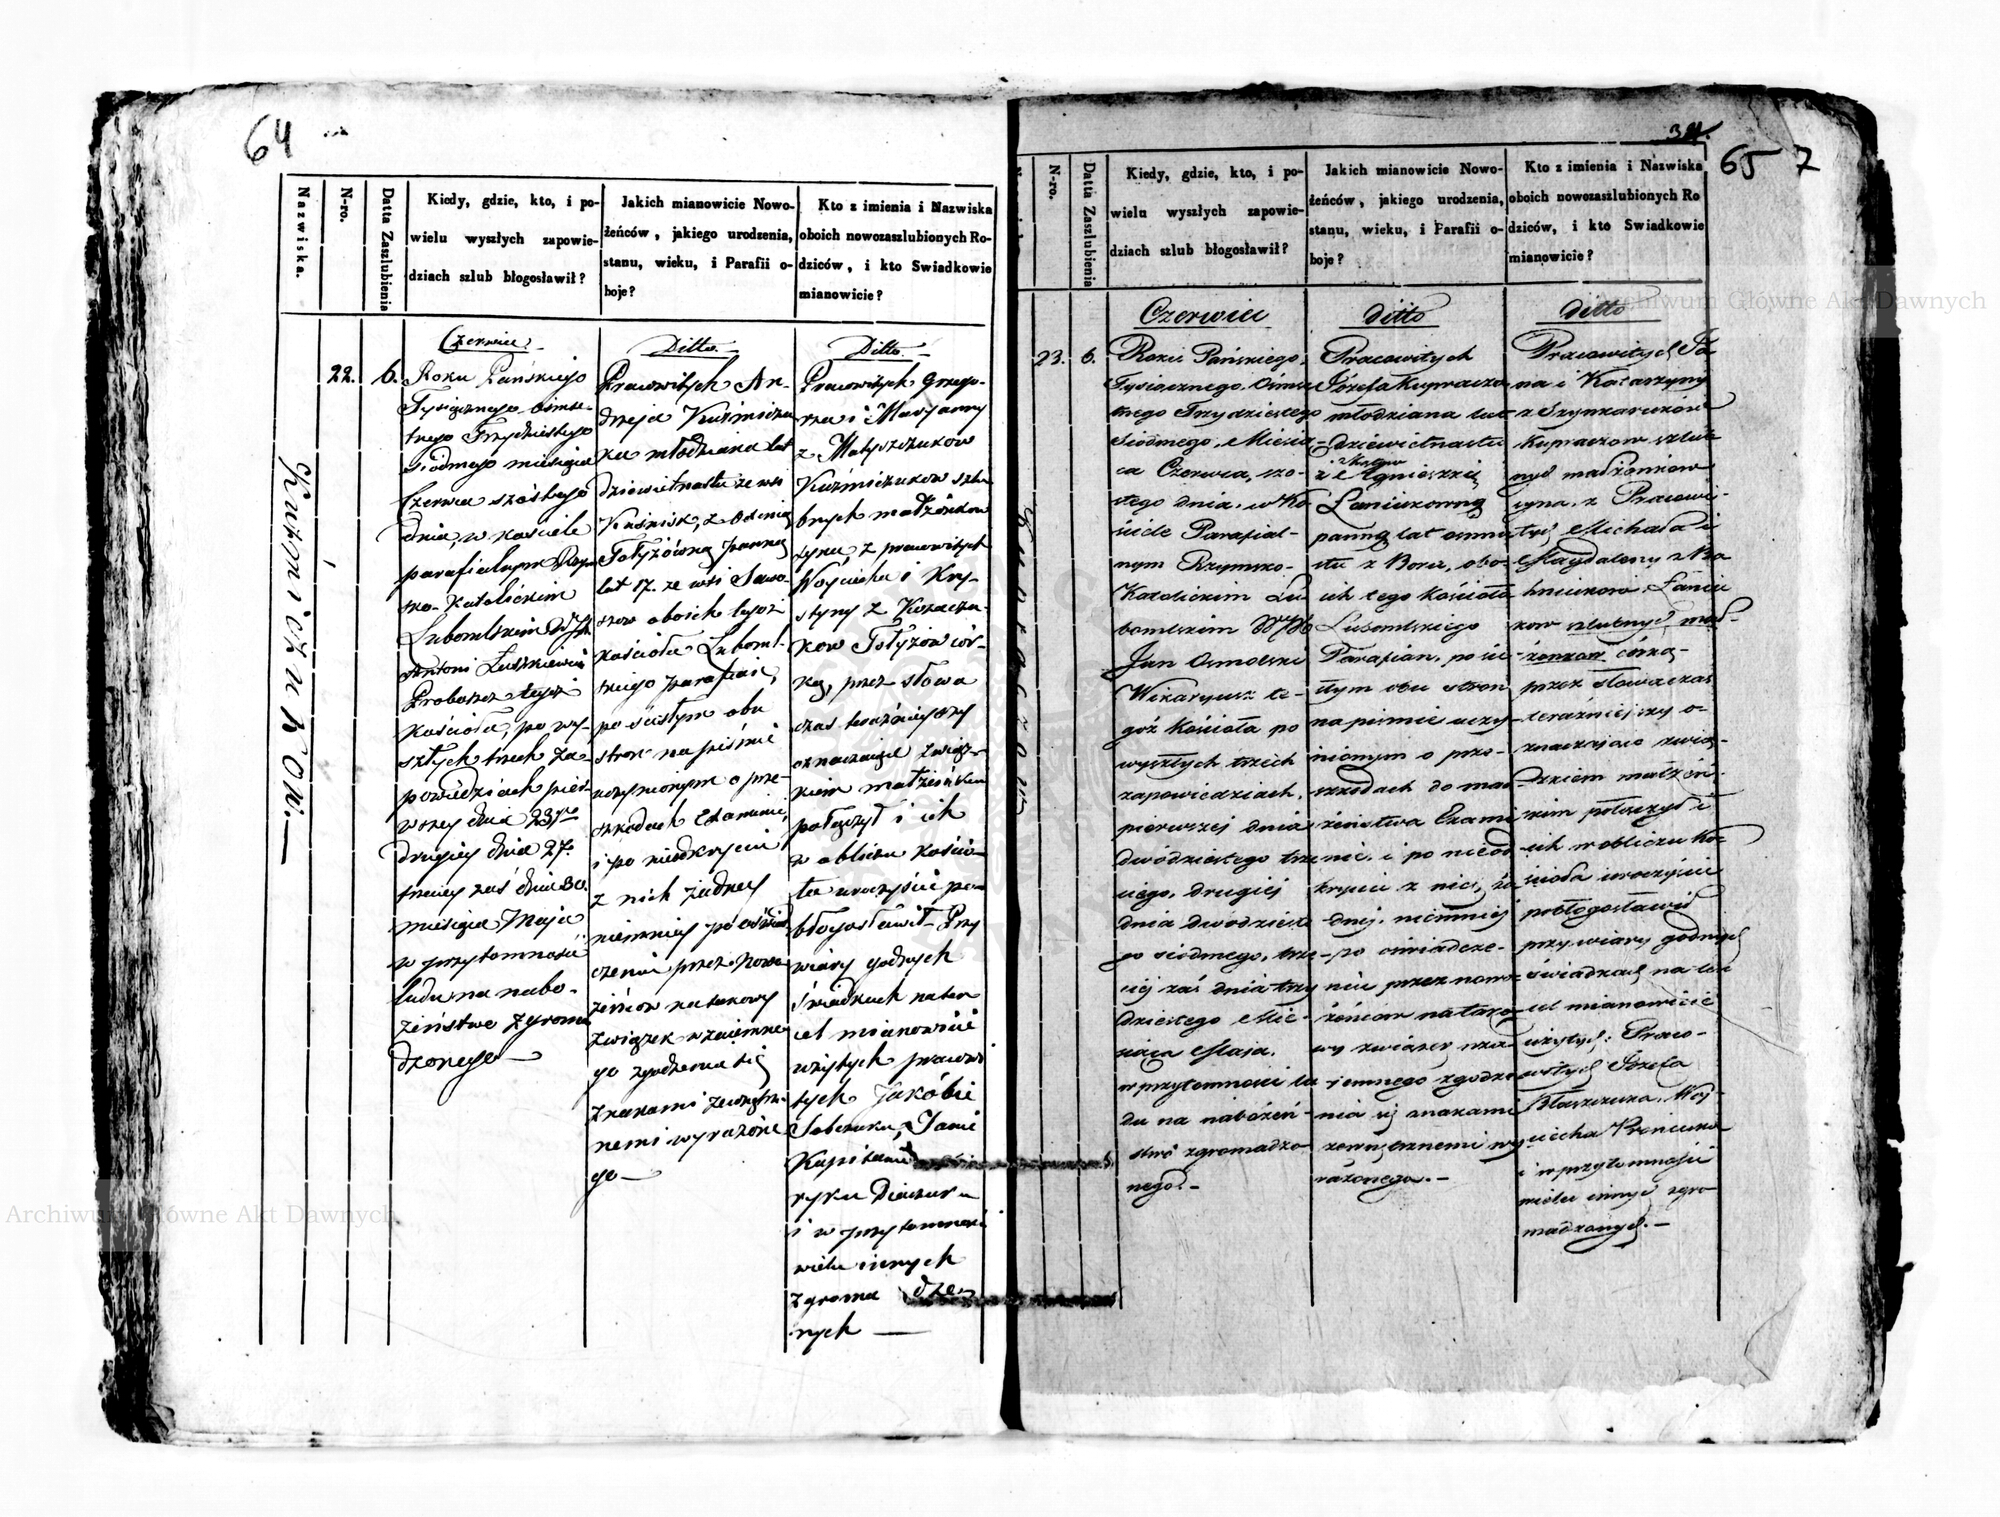 64
Nazwiska.
N-ro.
Datta Zaszlubienia
Kiedy, gdzie, kto, i po-
wielu wyszłych zapowie-
dziach szlub błogosławił?
Jakich mianowicie Nowo-
żeńców, jakiego urodzenia,
stanu, wieku, i Parafii o-
boje?
Kto z imienia i Nazwiska
oboich nowozaszlubionych Ro-
dziców, i kto Swiadkowie
mianowicie?
Kuźmiczuków.
22.
6.
Czerwiec.
Roku Pańskiego
Tysiącznego ośmse-
tnego Trzydziestego
siódmego miesiąca
Czerwca szóstego
dnia, w kościele
parafialnym Rzym-
sko-Katolickim
Lubomlskim
Antoni
Proboszcz tegoż
kościoła, po wy-
szłych trzech za-
powiedziach pier-
wszey dnia 23go
drugiey dnia 27.
trzeciey zaś dnia 30.
miesiąca Maja
w przytomności
ludu na nabo-
żeństwo zgroma-
dzonego—
Ditto.
Pracowitych An-
drzeja Kuźmiczu-
ka młodziana lat
dziewietnastu ze wsi
z
pannę
lat 17. ze wsi
oboich tegoż
kościoła Luboml-
skiego parafian,
po ścisłym obu
stron na piśmie
uczynionym o prze-
szkodach Examinie,
i po nieodkryciu
z nich żadney
niemniey po oświad-
czeniu przez Nowo-
żeńców na takowy
związek wzaiemne-
go zgodzenia się
znakami zewnętrz-
nemi wyrażone-
go—
Ditto.
Pracowitych Grzego-
rza i Maryanny
z Matyszczuków
Kuźmiczuków szlu-
bnych małżonków
syna, z pracowitych
Woyciecha i Kry-
styny z
cór-
kę, przez słowa
czas teraźnieyszy
oznaczaiące związ-
kiem małżeńskim
połączył i ich
w obliczu kościo-
ła uroczyście po-
błogosławił. Przy
wiary godnych
świadkach na ten
cel mianowicie
użytych pracowi-
tych Jakóbie
Sobczuku, Janie
i w przytomności
wielu innych
zgroma dzo-
nych —
34.
65 7
N-ro.
Datta Zaszlubienia
Kiedy, gdzie, kto, i po-
wielu wyszłych zapowie-
dziach szlub błogosławił?
Jakich mianowicie Nowo-
żeńców, jakiego urodzenia,
stanu, wieku, i Parafii o-
boje?
Kto z imienia i Nazwiska
oboich nowozaszlubionych Ro-
dziców, i kto Swiadkowie
mianowicie?
23.
6.
Czerwiec
Roku Pańskiego,
Tysiącznego, Ośmse-
tnego Trzydziestego
Siódmego, Miesią-
ca Czerwca, szó-
stego dnia, w Ko-
ściele Parafial-
nym Rzymsko-
Katolickim Lu-
bomlskim WJX
Jan Osmolski
Wikaryusz te-
goż Kościoła po
wyszłych trzech
zapowiedziach,
pierwszej dnia
dwódziestego trze-
ciego, drugiej
dnia dwódzieste-
go siódmego, trze-
ciej zaś dnia trzy-
dziestego Mie-
siąca Maja.
w przytomności lu-
du na nabożeń-
stwo zgromadzo-
nego.—
ditto
Pracowitych
Józefa Kupracza
młodziana lat
dziewietnastu
z Agnieszką
panną lat ośmna-
stu z Boru, obo-
ich tego kościoła
Lubomlskiego
Parafian, po ści-
słym obu stron
na piśmie uczy-
nionym o prze-
szkodach do mał-
żeństwa Exami-
nie, i po nieod-
kryciu z nich ża-
dnej, niemniej
po oświadcze-
niu przez nowo-
żeńców na tako-
wy związek wza-
jemnego zgodze-
nia się znakami
zewnętrznemi wy-
rażonego.—
ditto
Pracowitych Ja-
na i Katarzyny
z Szynkaruków
Kupraczow szlub-
nych małżonkow
syna, z Pracowi-
tych Michała i
Magdaleny z
szlubnych mał-
żonkow córką,
przez słowa czas
teraźniejszy o-
znaczające zwią-
zkiem małżeń-
skim połączył i
ich w obliczu Ko-
ścioła uroczyście
pobłogosławił
przy wiary godnych
świadkach na ten
cel mianowicie
użytych: Praco-
witych Józefa
Błaszczuka, Woj-
ciecha
i w przytomności
wielu innych zgro-
madzonych.—
Archiwum Główne Akt Dawnych
Archiwum Główne Akt Dawnych